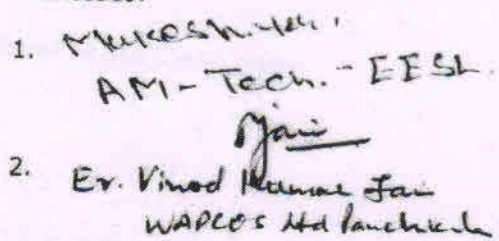 1. Mukesh
AM-Tech.-EESL
Jain
2. Er. Vinod Kumar Jain
WAPCOS Ltd Panchkula